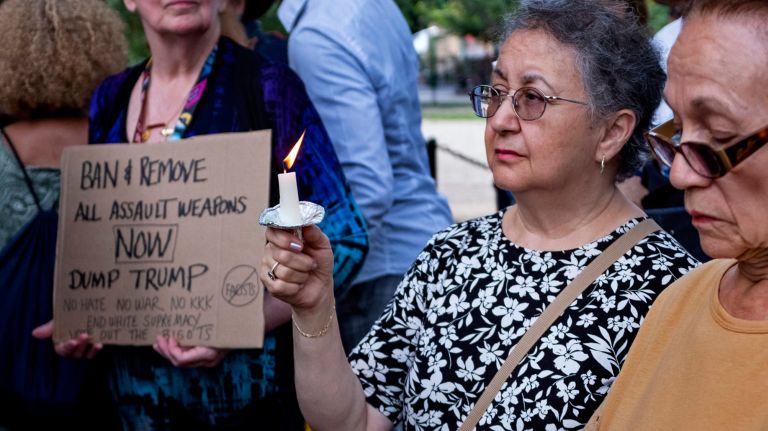 BAN & REMOVE
ALL ASSAULT WEAPONS
NOW
DUMP TRUMP
NO HATE NO WAR, NO KKK
FACISTS
END WHITE SUPREMACY
VOTE OUT THE BIGOTS